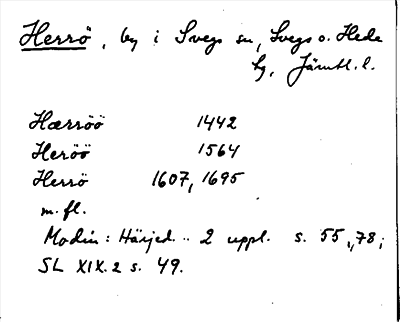 Herrö, by i Svegs sn, Svegs o. Hede
hg, Jämtl. l.
Hærröö 1442
Heröö 1564
Herrö 1607, 1695
m.fl.
Modin: Härjed. .. 2 uppl. s. 55, 78;
SL XIX. 2 s. 49.